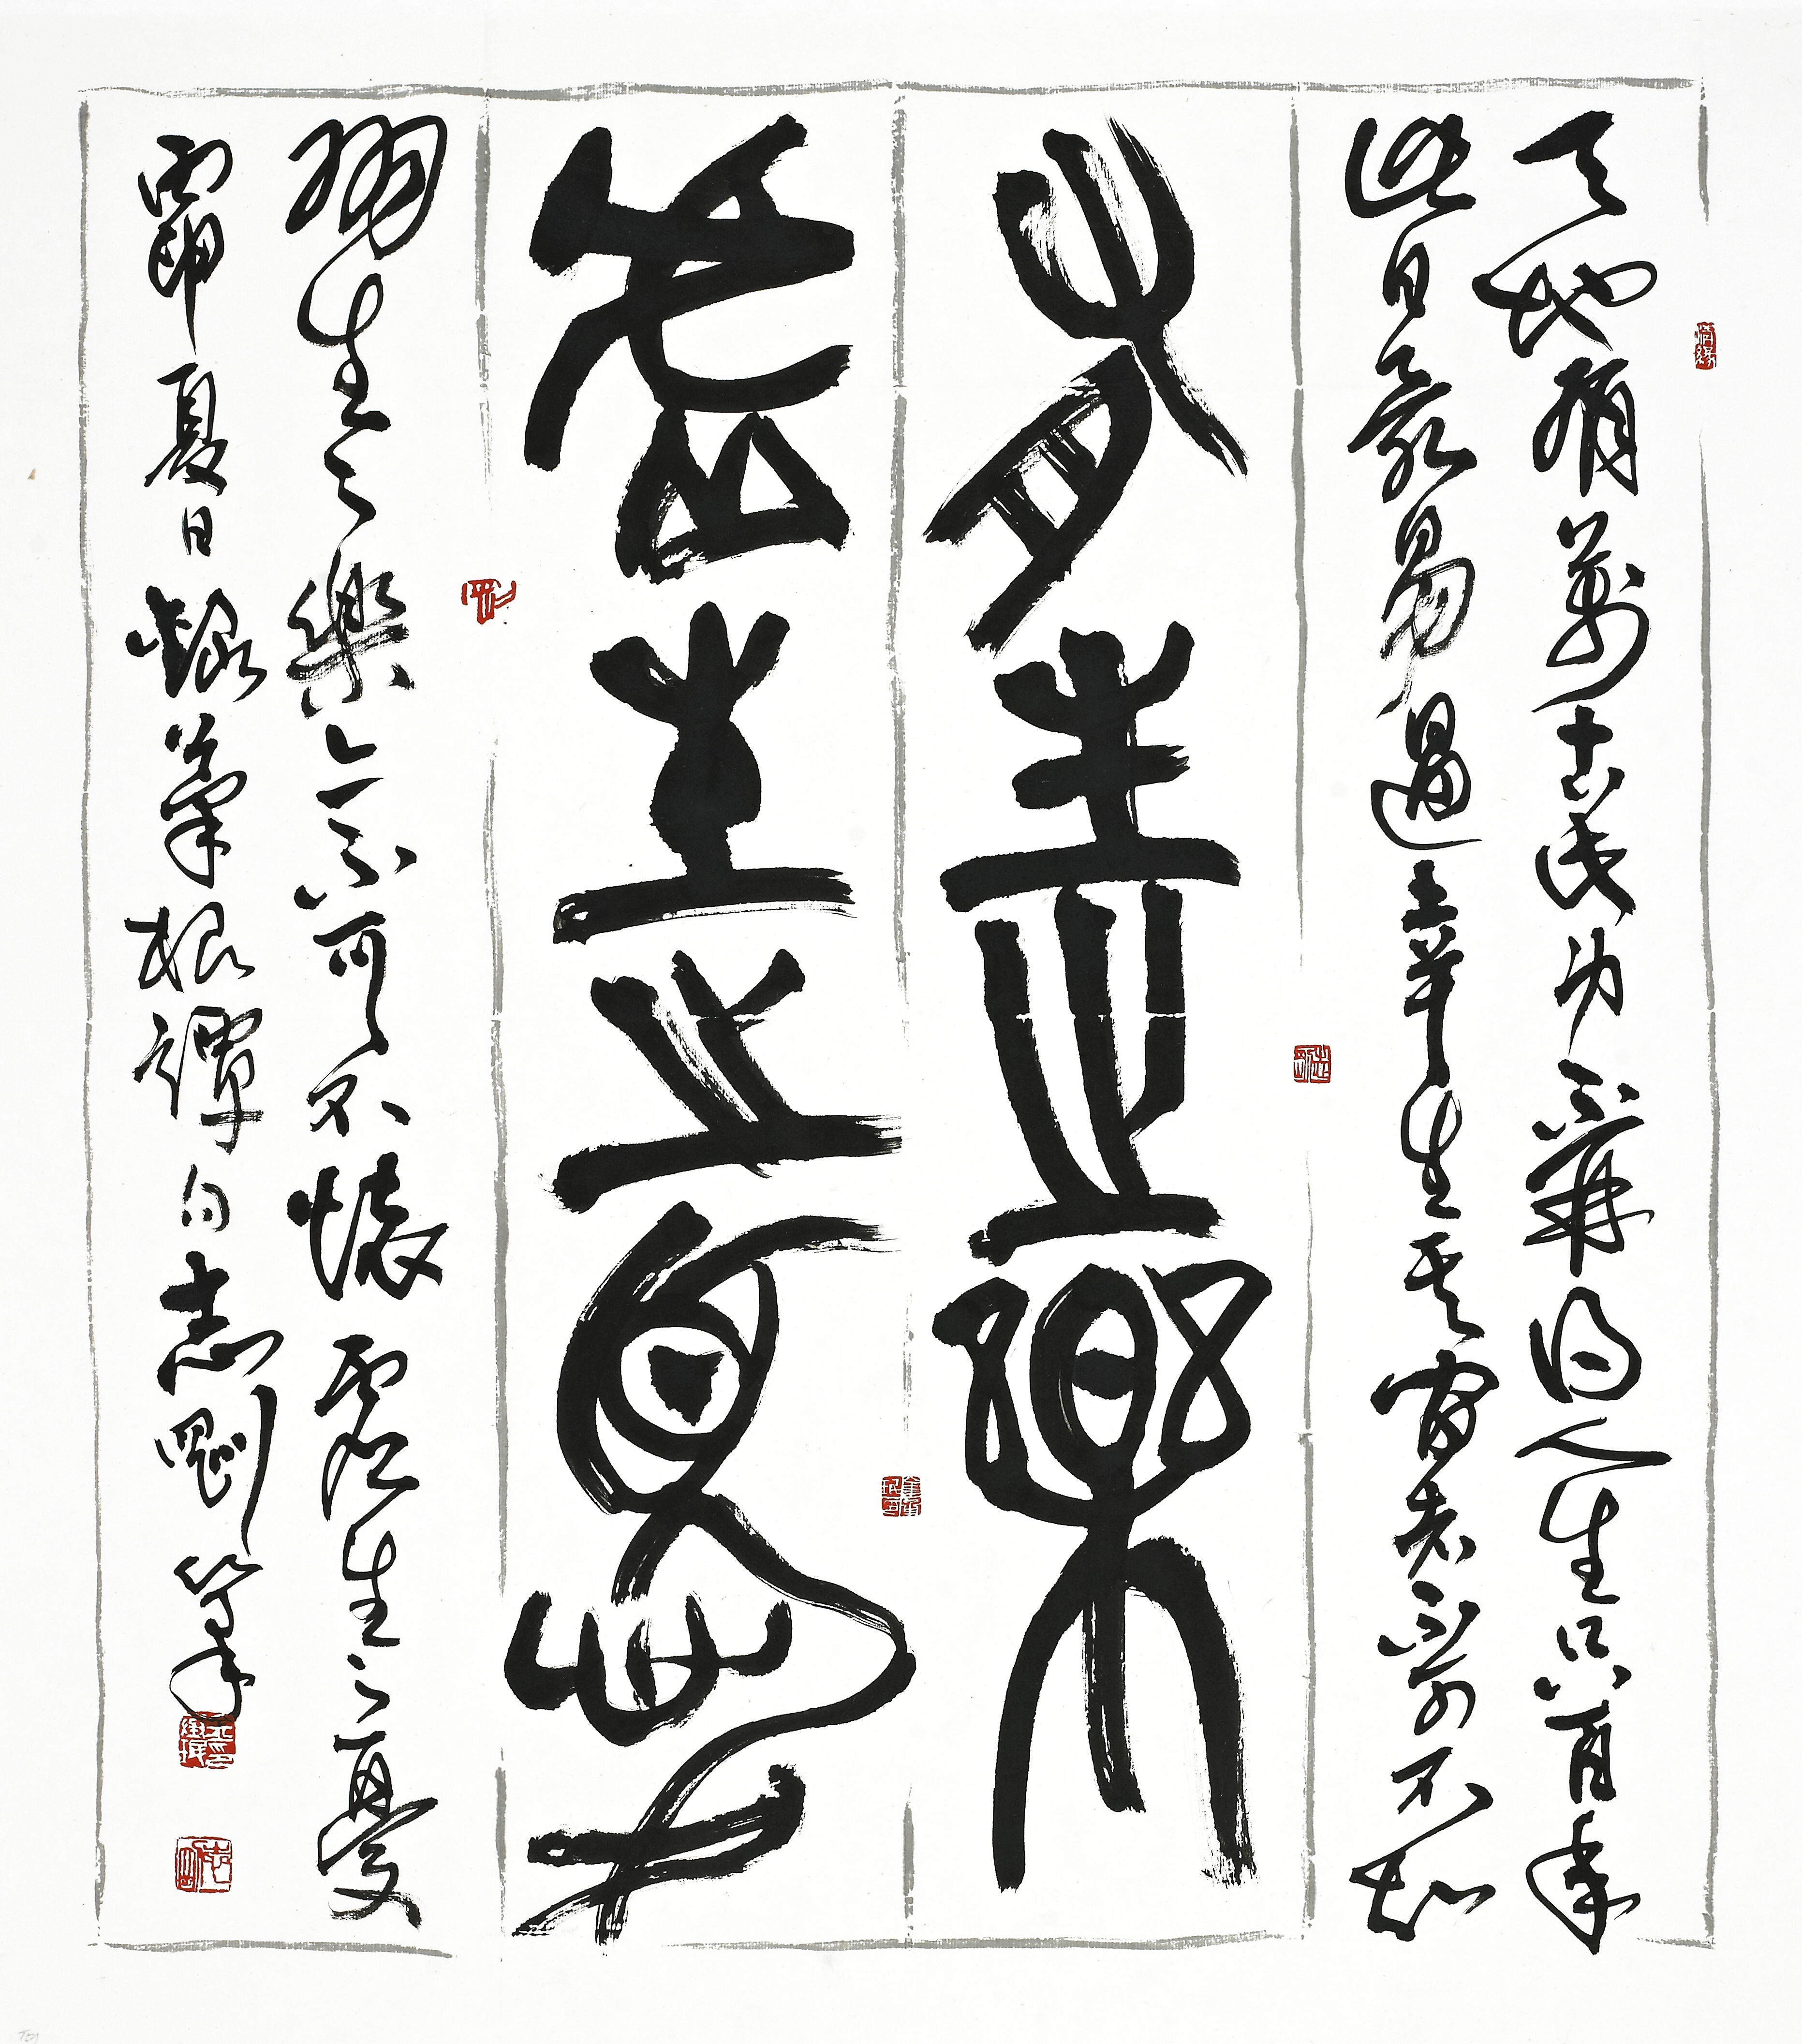 天地有萬古此身不再得人生只百年
此日最易過幸生其間者不可不知
有生之樂
虛生之憂
有生之樂亦不可不懷虛生之憂
丙申夏日錄菜根譚句志剛筆